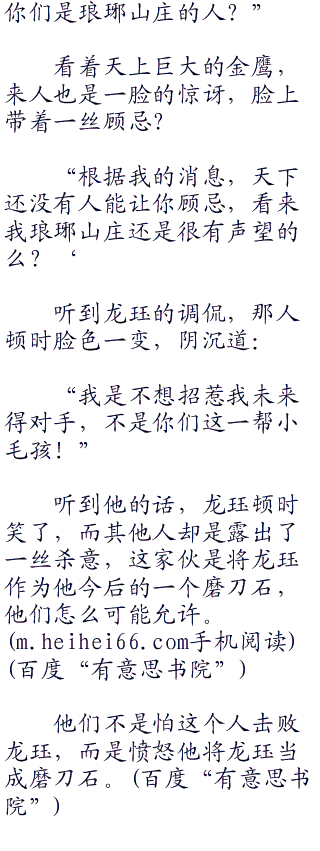 你们是琅琊山庄的人？”
看着天上巨大的金鹰，
来人也是一脸的惊讶，脸上
带着一丝顾忌？
“根据我的消息，天下
还没有人能让你顾忌，看来
我琅琊山庄还是很有声望的
么？‘
听到龙珏的调侃，那人
顿时脸色一变，阴沉道：
“我是不想招惹我未来
得对手，不是你们这一帮小
毛孩！”
听到他的话，龙珏顿时
笑了，而其他人却是露出了
一丝杀意，这家伙是将龙珏
作为他今后的一个磨刀石，
他们怎么可能允许。
(m.heihei66.com手机阅读)
(百度“有意思书院”)
他们不是怕这个人击败
龙珏，而是愤怒他将龙珏当
成磨刀石。(百度“有意思书
院”)